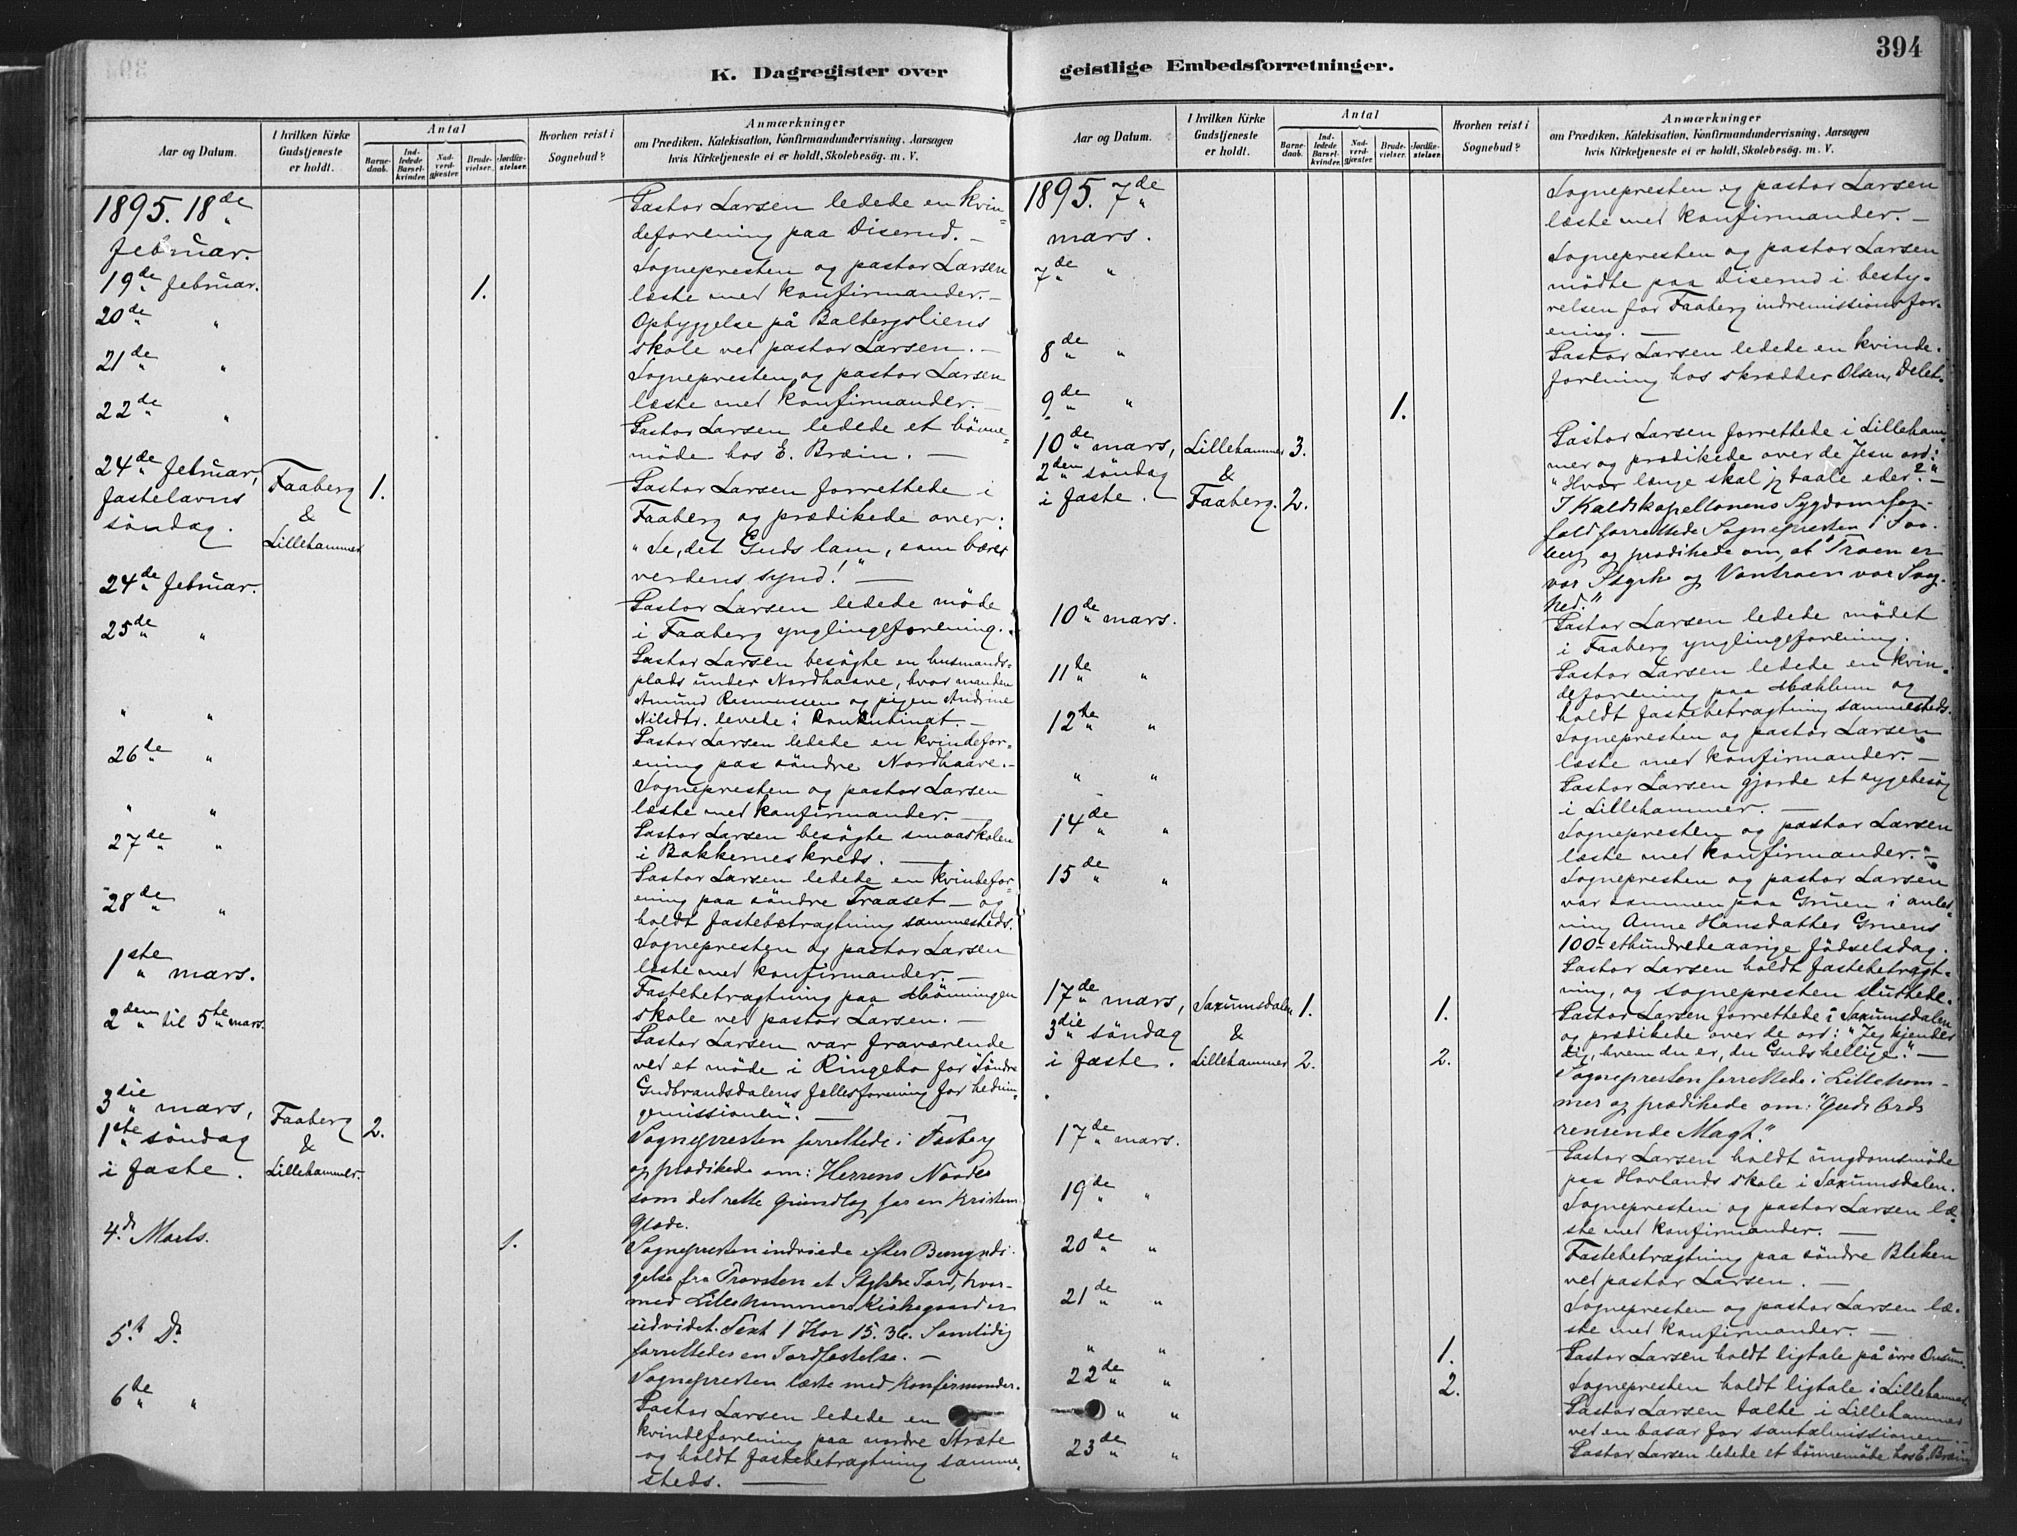 394
K. Dagregister over
geistlige Embedsforretninger.
Aar og Datum.
I hvilken Kirke
Gudstjeneste
er holdt.
Antal
Barne-
daab.
Ind-
ledede
Barsel-
kvinder.
Nad-
verd-
gjæster.
Brude-
vielser.
Jordfæ-
stelser.
Hvorhen reist i
Sognebud?
Anmærkninger
om Prædiken, Katekisation, Konfirmandundervisning, Aarsagen
hvis Kirketjeneste ei er holdt, Skolebesøg. m. V.
1895. 18de
februar.
Pastor Larsen ledede en kvin-
deforening paa Diserud. —
19de februar.
1.
Sognepresten og pastor Larsen
læste med konfirmander. —
20de "
Opbyggelse på Balbergsliens
skole ved pastor Larsen. —
21de "
Sognepresten og pastor Larsen
læste med konfirmander. —
22de "
Pastor Larsen ledede et bønne-
møde hos E. Bræin. —
24de februar,
fastelavns
søndag.
Faaberg
&
Lillehammer
1.
Pastor Larsen forrettede i
Faaberg og prædikede over:
"Se, det Guds lam, som bærer
verdens synd!" —
24de februar.
Pastor Larsen ledede møde
i Faaberg ynglingeforening.
25de "
Pastor Larsen besøgte en husmands-
plads under Nordhaave, hvor manden
Amund Rasmussen og pigen Andrine
Nilsdtr. levede i Konkubinat. —
" "
Pastor Larsen ledede en kvindefor-
ening paa søndre Nordhaave. —
26de "
Sognepresten og pastor Larsen
læste med konfirmander. —
" "
Pastor Larsen besøgte smaaskolen
i Bakkernes kreds. —
27de "
Pastor Larsen ledede en kvindefor-
ening paa søndre Traaset — og
holdt fastebetragtning sammesteds.
28de "
Sognepresten og pastor Larsen
læste med konfirmander. —
1ste " mars.
Fastebetragtning paa Hønningen
skole ved pastor Larsen. —
2den til 5te mars.
Pastor Larsen var fraværende
ved et møde i Ringebo for "Søndre
Gudbrandsdalens fellesforening for hednin-
gemissionen". —
3die mars,
1ste søndag
i faste.
Faaberg
&
Lillehammer.
2.
Sognepresten forrettede i Faaberg
og prædikede om: Herrens Naade
som det rette Grundlag for en kristen
Glæde.
4de Marts.
1.
Sognepresten indviede efter Bemyndi-
gelse fra Provsten et Stykke Jord, hvor-
med Lillehammers Kirkegaard er
udvidet. Text 1 Kor 15. 36. Samtidig
forrettedes en Jordfæstelse. —
5te Do
Sognepresten læste med Konfirmander.
6de "
Pastor Larsen ledede en
kvindeforening paa nordre Stræte
og holdt fastebetragtning samme-
steds. —
Aar og Datum.
I hvilken Kirke
Gudstjeneste
er holdt.
Antal
Barne-
daab.
Ind-
ledede
Barsel-
kvinder.
Nad-
verd-
gjæster.
Brude-
vielser.
Jordfæ-
stelser.
Hvorhen reist i
Sognebud?
Anmærkninger
om Prædiken, Katekisation, Konfirmandundervisning, Aarsagen
hvis Kirketjeneste ei er holdt, Skolebesøg. m. V.
1895. 7de
mars.
Sognepresten og pastor Larsen
læste med konfirmander. —
7de "
Sognepresten og pastor Larsen
mødte paa Diserud i besty-
relsen for Faaberg indremissionsfor-
ening. —
8de "
Pastor Larsen ledede en kvinde-
forening hos skrædder Olsen, Delet.
9de "
1.
10de mars,
2den søndag
i faste.
Lillehammer
&
Faaberg.
3.
2.
Pastor Larsen forrettede i Lilleham-
mer og prædikede over de Jesu ord:
"Hvor længe skal jeg taale eder?" —
I Kaldskapellanens Sygdomsfor-
fald forrettede Sognepresten i Faa-
berg og prædikede om, at Troen er
vor Styrke og Vantroen vor Svag-
hed."
10de mars.
Pastor Larsen ledede mødet
i Faaberg ynglingeforening.
11te "
Pastor Larsen ledede en kvin-
deforening paa Mæhlum og
holdt fastebetragtning sammesteds.
12te "
Sognepresten og pastor Larsen
læste med konfirmander. —
" "
Pastor Larsen gjorde et sygebesøg
i Lillehammer. —
14de "
Sognepresten og pastor Larsen
læste med konfirmander. —
15de "
Sognepresten og pastor Larsen
var sammen paa Gruen i anled-
ning Anne Hansdatter Gruens
100- ethundredeaarige fødselsdag.
Pastor Larsen holdt fastebetragt-
ning, og sognepresten sluttede.
17de mars,
3die søndag
i faste.
Saxumsdalen
&
Lillehammer
1.
2.
1.
2.
Pastor Larsen forrettede i Saxumsdalen
og prædikede over de ord: "Jeg kjender
dig, hvem du er, du Guds hellige." —
Sognepresten forrettede i Lilleham-
mer og prædikede om: "Guds Ords
rensende Magt."
17de mars.
Pastor Larsen holdt ungdomsmøde
paa Hovlands skole i Saxumsdalen.
19de "
Sognepresten og pastor Larsen læ-
ste med konfirmander. —
20de "
Fastebetragtning paa søndre Bleken
ved pastor Larsen. —
21de "
Sognepresten og pastor Larsen læ-
ste med konfirmander. —
" "
1.
Pastor Larsen holdt ligtale på øvre Onsum.
22de "
2.
Sognepresten holdt ligtale i Lillehammer.
" "
Pastor Larsen talte i Lillehammer
ved en basar for santalmissionen. —
23de "
Pastor Larsen ledede et bønnemøde hos E. Bræin